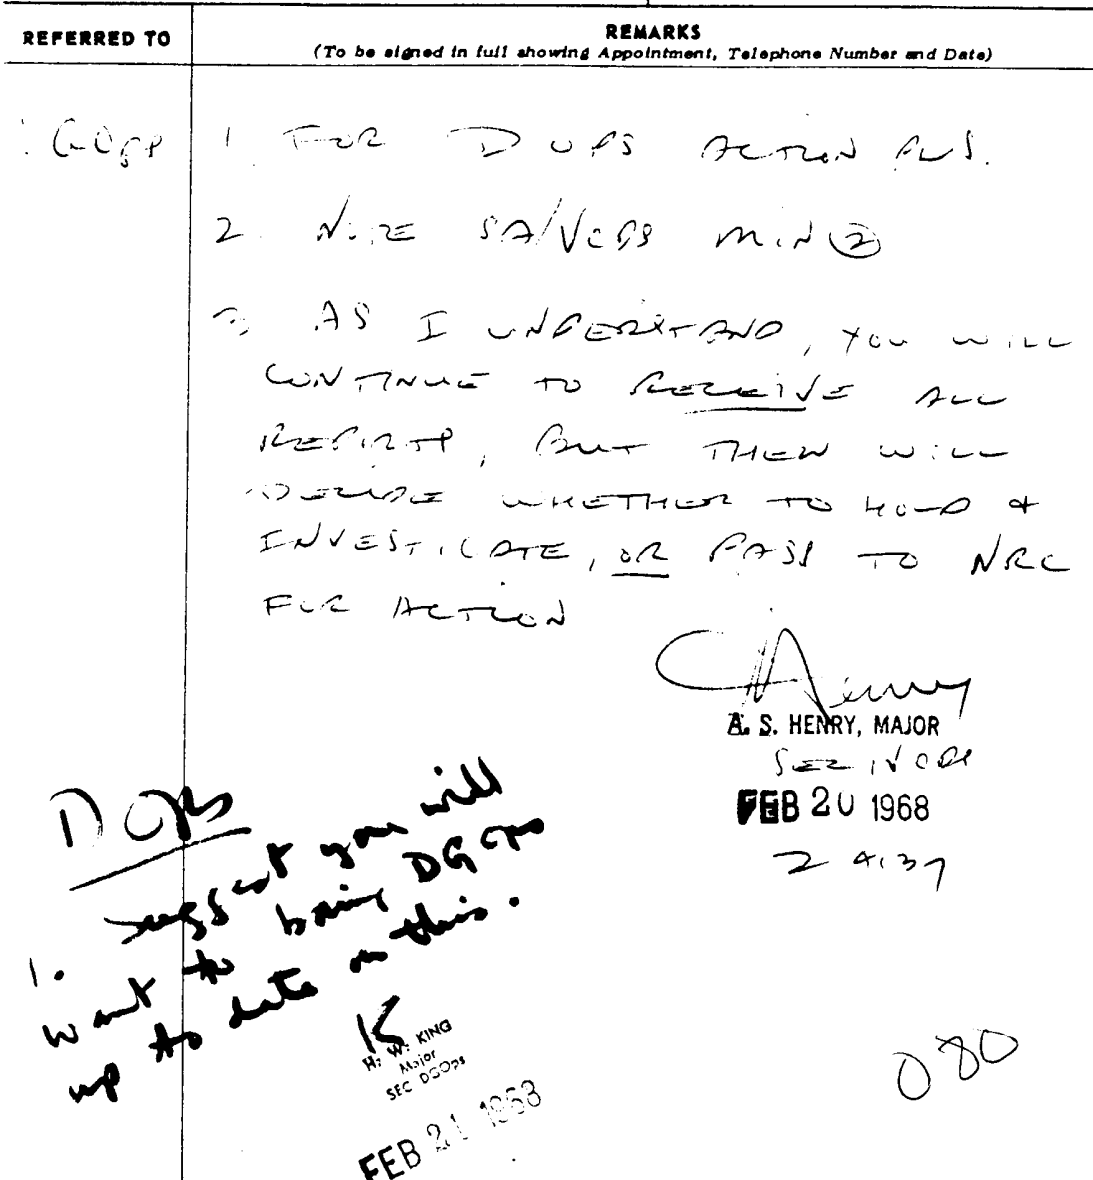 REFERRED TO
REMARKS
(To be signed in full showing Appointment, Telephone Number and Date)
1. FOR D OPS ACTION PLS.
2. NOTE SA/VCDS MIN ②
3. AS I UNDERSTAND, YOU WILL
CONTINUE TO RECEIVE ALL
REPORTS, BUT THEN WILL
DECIDE WHETHER TO HOLD &
INVESTIGATE, OR PASS TO NRC
FOR ACTION
A. S. HENRY, MAJOR
SEC/VCDS
FEB 20 1968
2 4137
D Ops
1. Suggest you will
want to bring DG Ops
up to date on this.
K
H. W. KING
Major
SEC DGOps
FEB 21 1968
080